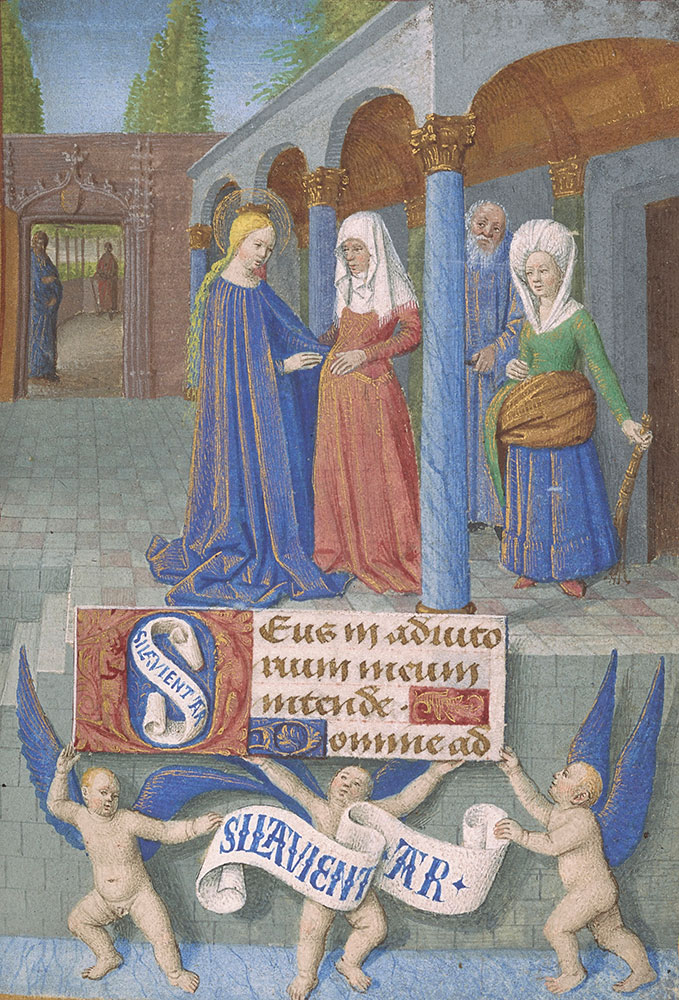 Deus in adiuto
SILAVIENT AR
rium meum
intende.
Domine ad
SILAVIENT · AR ·